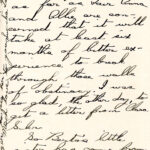 as far as Dear Anna
and Ollie are con-
cerned that it will
take at least six
months of bitter ex-
perience to break
through those walls
of obstinacy. I was
so glad, the other day to
get a letter from